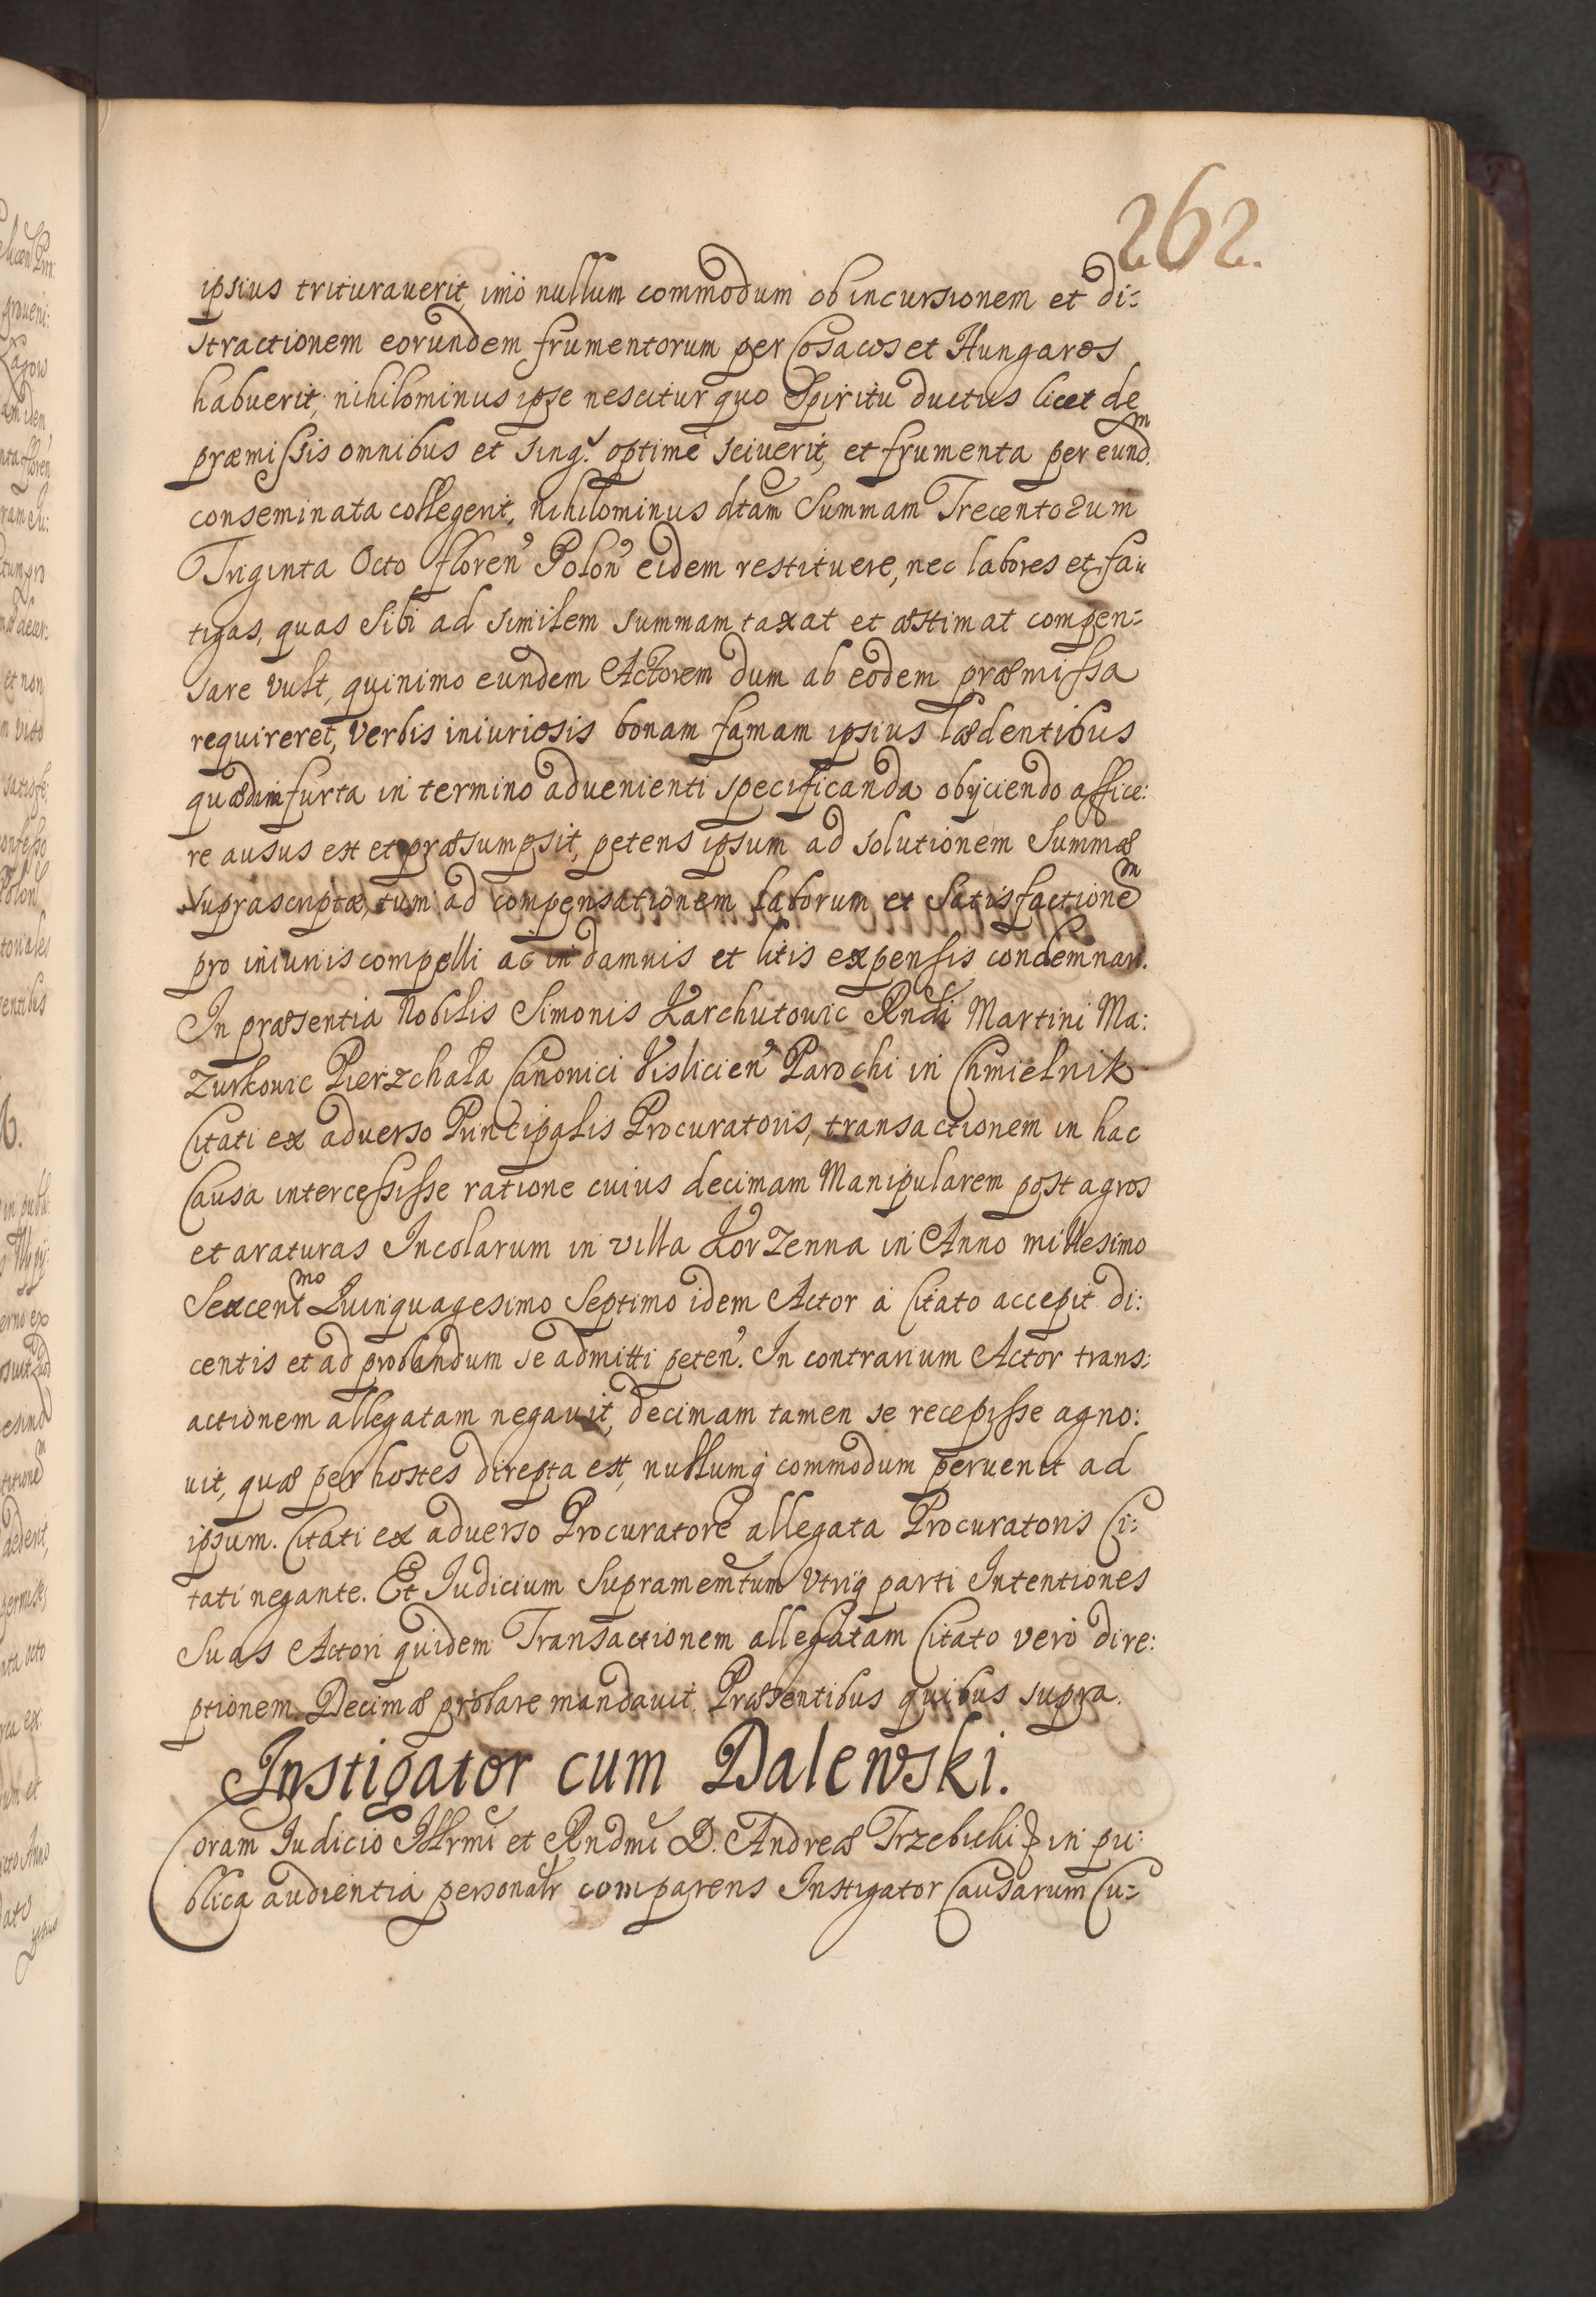 262.
ipsius triturauerit, imo nullum commodum ob incursionem et di:
stractionem eorundem frumentorum per Cosacos et Hungaros
habuerit; nihilominus ipse nescitur quo Spiritu ductus licet de
præmissis omnibus et sing: optime sciuerit, et frumenta per eundm
conseminata collegerit, nihilominus dtam Summam Trecentorum
Triginta Octo floren Polon eidem restituere, nec labores et fa:
tigas, quas Sibi ad similem summam taxat et æstimat compen:
sare vult, quinimo eundem Actorem dum ab eodem præmissa
requireret, verbis iniuriosis bonam famam ipsius lædentibus
quædam furta in termino aduenienti specificanda obijciendo affice:
re ausus est et præsumpsit, petens ipsum ad solutionem Summæ
suprascriptæ, tum ad compensationem laborum et Satisfactionem
pro iniuriis compelli ac in damnis et litis expensis condemnari.
In præsentia Nobilis Simonis Karchutowic Rndi Martini Ma:
zurkowic Pierzchała Canonici Vislicien Parochi in Chmielnik
Citati ex aduerso Principalis Procuratoris, transactionem in hac
Causa intercessisse ratione cuius decimam Manipularem post agros
et araturas Incolarum in villa Korzenna in Anno millesimo
Sexcentmo Quinquagesimo Septimo idem Actor à Citato accepit di:
centis et ad probandum se admitti peten. In contrarium Actor trans:
actionem allegatam negauit, decimam tamen se recepisse agno:
uit, quæ per hostes direpta est, nullumq commodum peruenit ad
ipsum. Citati ex aduerso Procuratore allegata Procuratoris Ci:
tati negante. Et Iudicium Supramemtum vtriq parti Intentiones
Suas Actori quidem Transactionem allegatam Citato vero dire:
ptionem Decimæ probare mandauit. Præsentibus quibus supra.
Instigator cum Dalewski.
Coram Iudicio Illrmi et Rndmi D. Andreæ Trzebicki in pu:
blica audientia personalr comparens Instigator Causarum Cu: